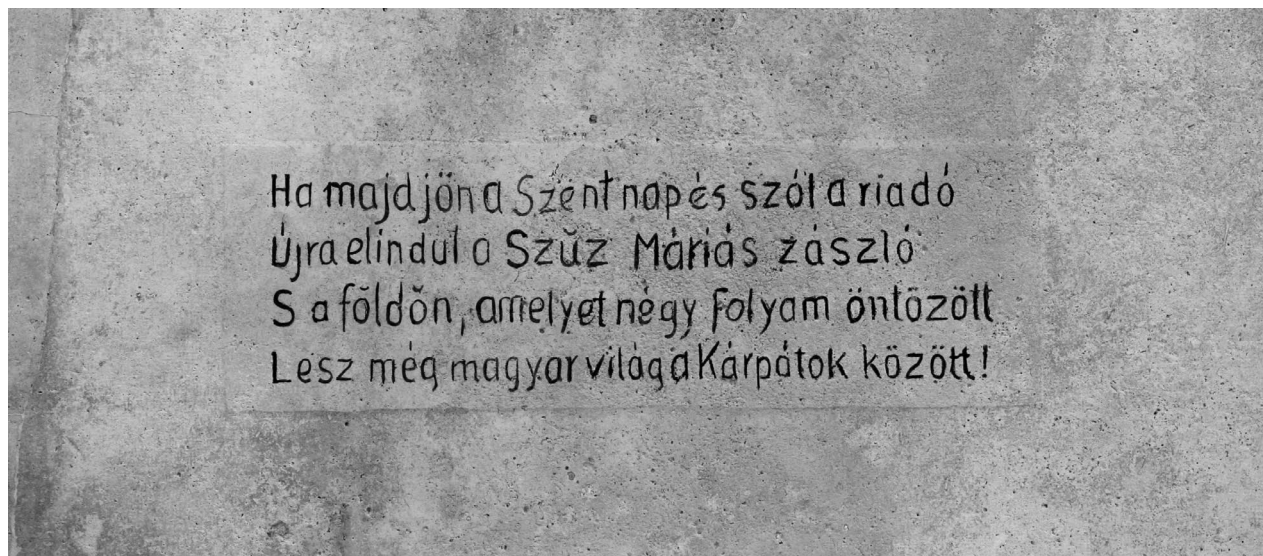 Ha majd jön a Szent nap és szól a riadó
Újra elindul a Szűz Máriás zászló
S a földön, amelyet négy folyam öntözött
Lesz még magyar világ a Kárpátok között!